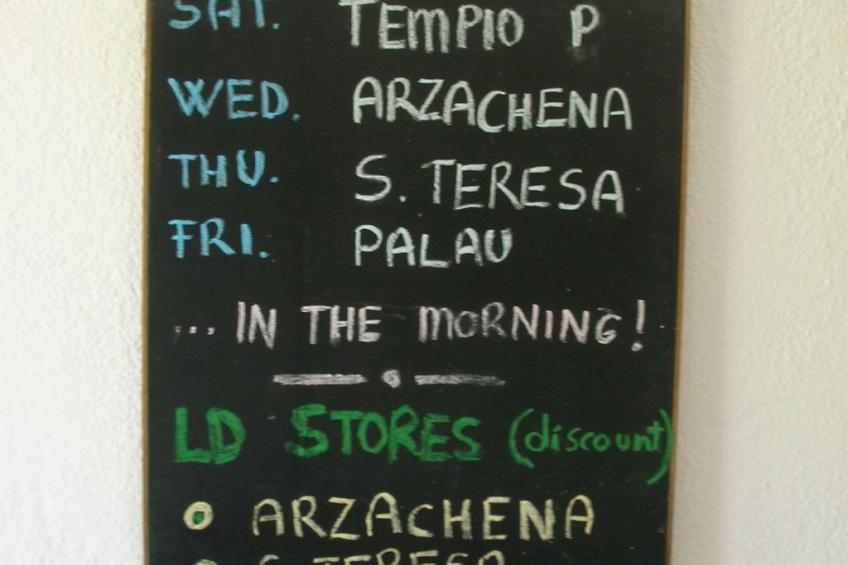 SAT. TEMPIO P
WED. ARZACHENA
THU. S. TERESA
FRI. PALAU
... IN THE MORNING!
LD STORES (discount)
ARZACHENA
S. TERESA